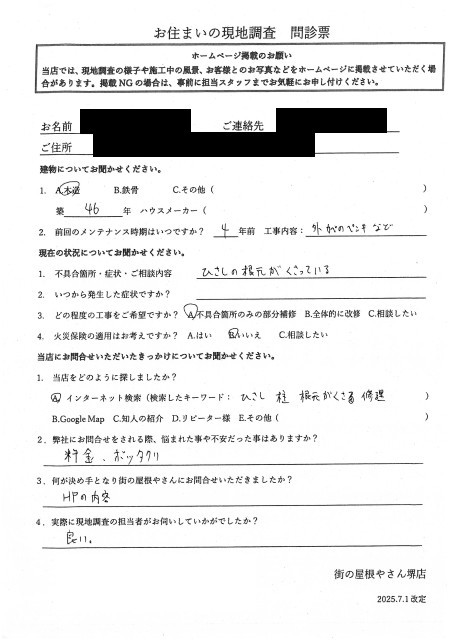 お住まいの現地調査 問診票
ホームページ掲載のお願い
当店では、現地調査の様子や施工中の風景、お客様とのお写真などをホームページに掲載させていただく場
合があります。掲載NGの場合は、事前に担当スタッフまでお気軽にお申し付けください。
お名前 ご連絡先
ご住所
建物についてお聞かせください。
1. A.木造 B.鉄骨 C.その他( )
築 46 年 ハウスメーカー( )
2. 前回のメンテナンス時期はいつですか? 4 年前 工事内容: 外かべのペンキなど
現在の状況についてお聞かせください。
1. 不具合箇所・症状・ご相談内容 ひさしの根元がくさっている
2. いつから発生した症状ですか?
3. どの程度の工事をご希望ですか? A.不具合箇所のみの部分補修 B.全体的に改修 C.相談したい
4. 火災保険の適用はお考えですか? A.はい B.いいえ C.相談したい
当店にお問合せいただいたきっかけについてお聞かせください。
1. 当店をどのように探しましたか?
A. インターネット検索(検索したキーワード: ひさし 柱 根元がくさる 修理 )
B.Google Map C.知人の紹介 D.リピーター様 E.その他( )
2. 弊社にお問合せをされる際、悩まれた事や不安だった事はありますか?
料金、ボッタクリ
3. 何が決め手となり街の屋根やさんにお問合せいただきましたか?
HPの内容
4. 実際に現地調査の担当者がお伺いしていかがでしたか?
良い。
街の屋根やさん堺店
2025.7.1 改定